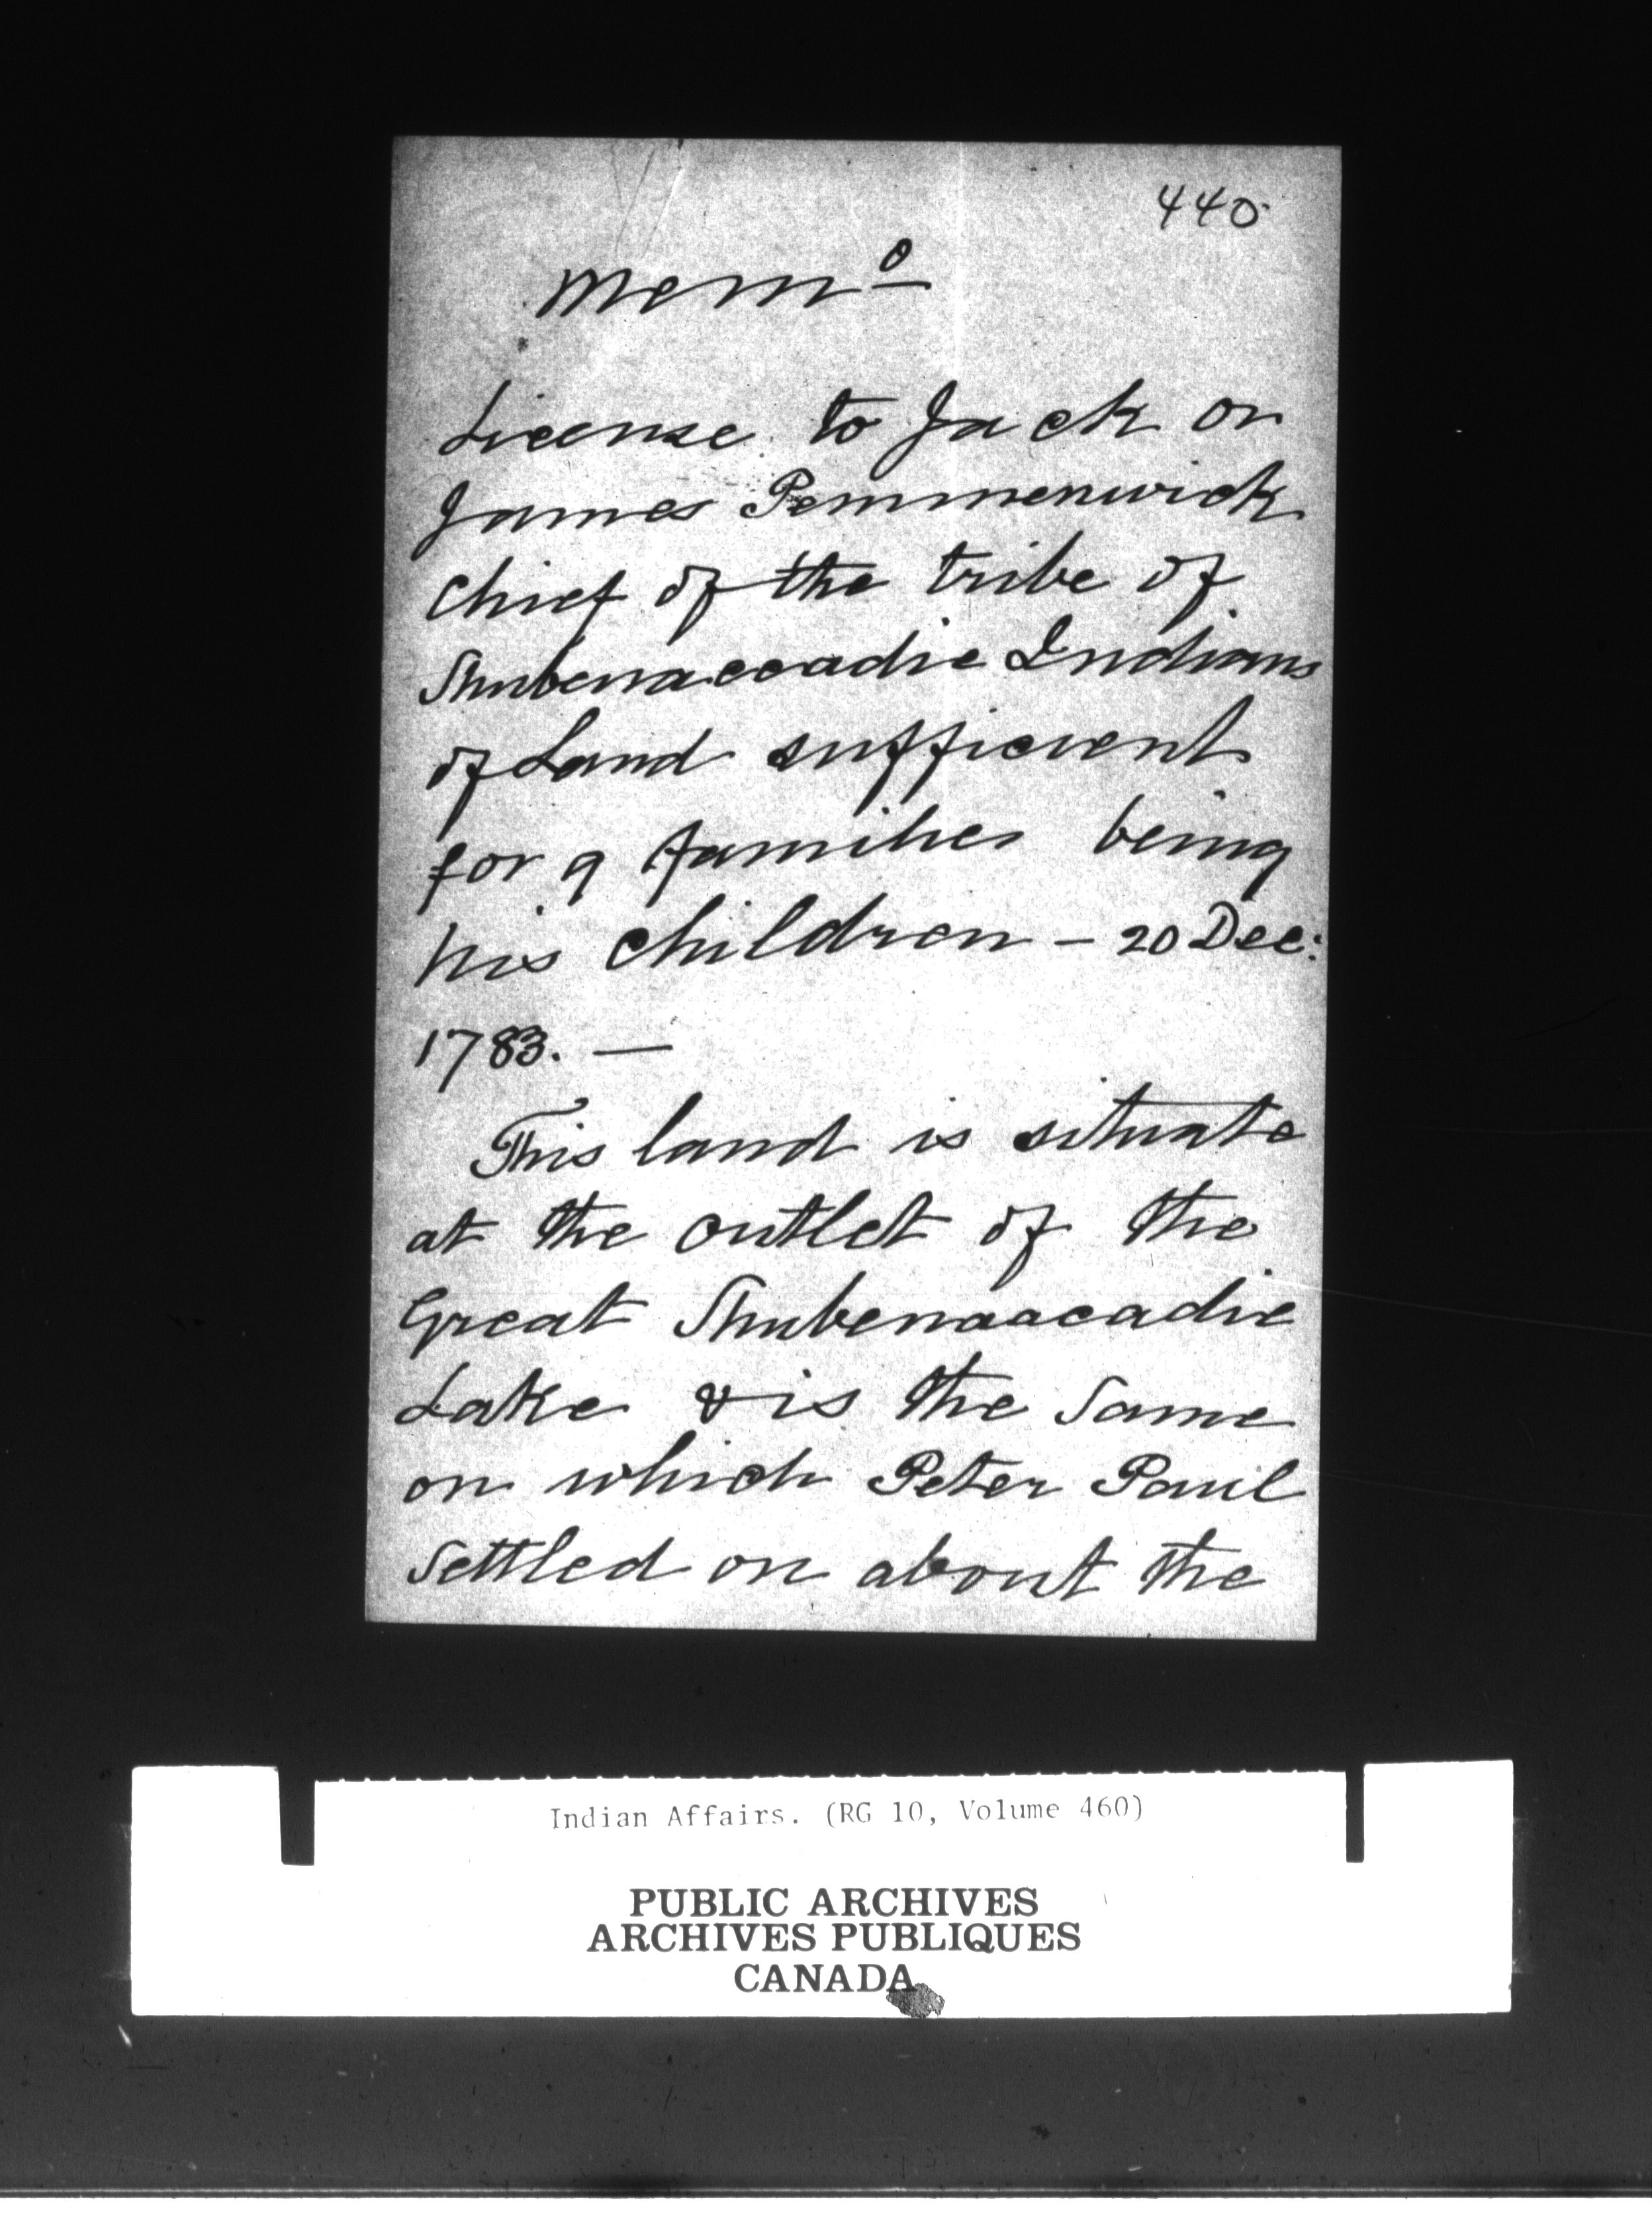 440
Memo
License to Jack or
James Pemmenwick
Chief of the tribe of
Shubenaccadie Indians
of Land sufficient
for 9 families being
his children - 20 Dec:
1783. —
This land is situate
at the outlet of the
Great Shubenaacadie
Lake & is the same
on which Peter Paul
settled on about the
Indian Affairs. (RG 10, Volume 460)
PUBLIC ARCHIVES
ARCHIVES PUBLIQUES
CANADA